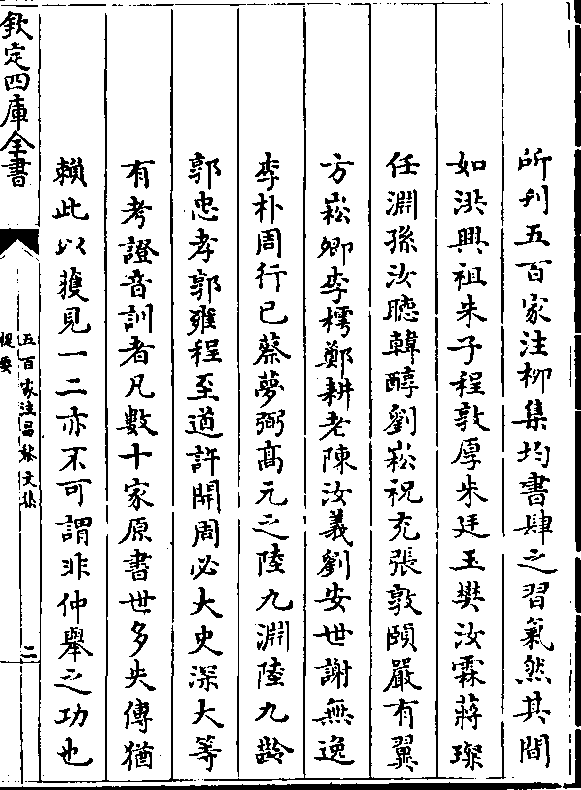 所刋五百家注柳集均書肆之習氣然其間
如洪興祖朱子程敦厚朱廷玉樊汝霖蔣璨
任淵孫汝聴韓醇劉崧祝充張敦頤嚴有翼
方崧卿李樗鄭耕老陳汝義劉安世謝無逸
李朴周行已蔡夢弼髙元之陸九淵陸九齡
郭忠孝郭雍程至道許開周必大史深大等
有考證音訓者凡數十家原書世多失傳猶
賴此以獲見一二亦不可謂非仲舉之功也
欽定四庫全書
五百家注昌黎文集
提要
二